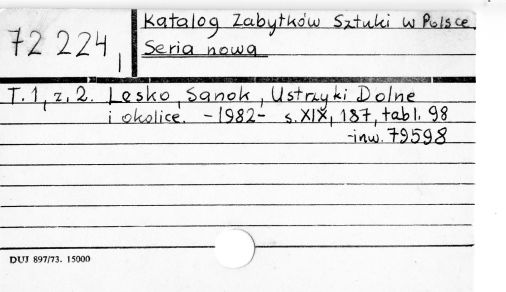 72 224, I
Katalog Zabytków Sztuki w Polsce.
Seria nowa
T. 1, z. 2. Lesko, Sanok, Ustrzyki Dolne
i okolice. -1982- s. XIX, 187, tabl. 98
-inw. 79598
DUJ 897/73. 15000